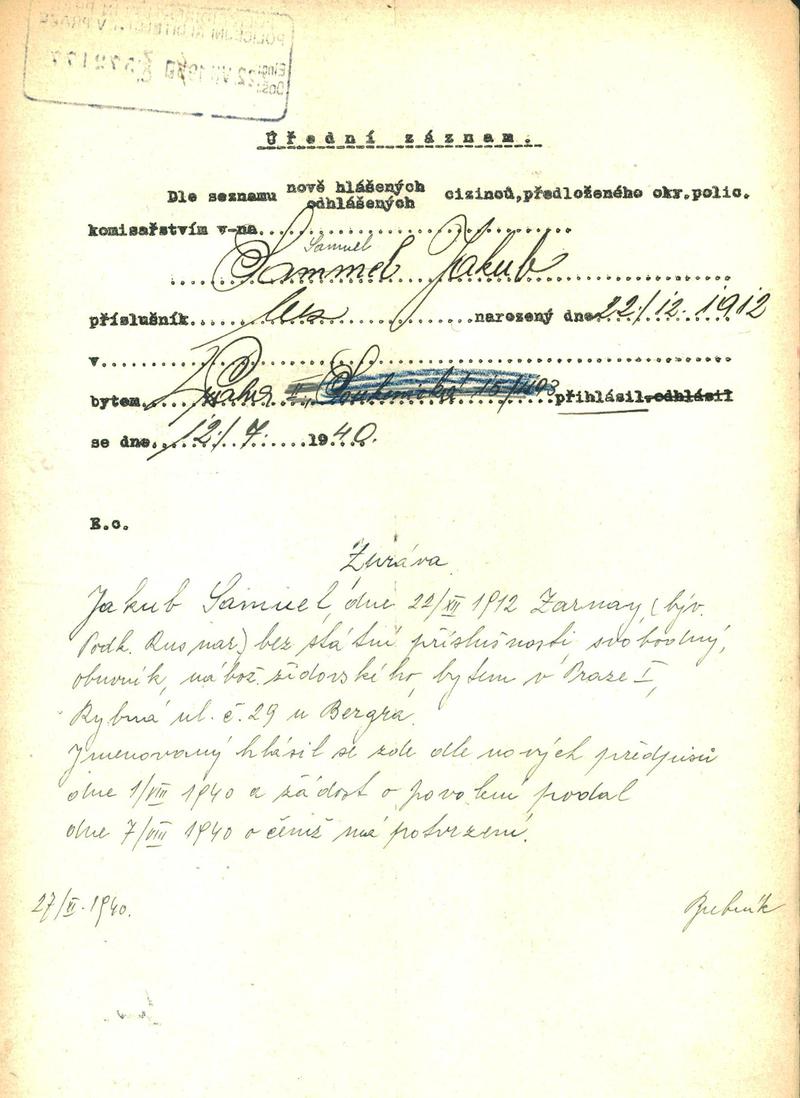 POLICEJNÍ ŘEDITELSTVÍ V PRAZE
Eing.:
Došlo: 22.VII.1940
Úřední záznam.
Dle seznamu nově hlášených cizinců, předloženého okr. polic.
odhlášených
komisařstvím v-na
Samuel
Sammel Jakub
příslušník bez narozený dne 22/12. 1912
v
bytem Praha II, 15/1193 přihlásil, odhlásil
se dne 12/7 1940.
E.o.
Zpráva
Jakub Samuel, dne 22/XII 1912 Zarnay, (býv.
Podk. Rus nar.) bez státní příslušnosti svobodný,
obuvník, nábož. židovského, bytem v Praze I,
Rybná ul. č. 29 u Bergra.
Jmenovaný hlásil se zde dle nových předpisů
dne 1/VIII 1940 a žádost o povolení podal
dne 7/VIII 1940 o čemž má potvrzení.
27/XI. 1940.